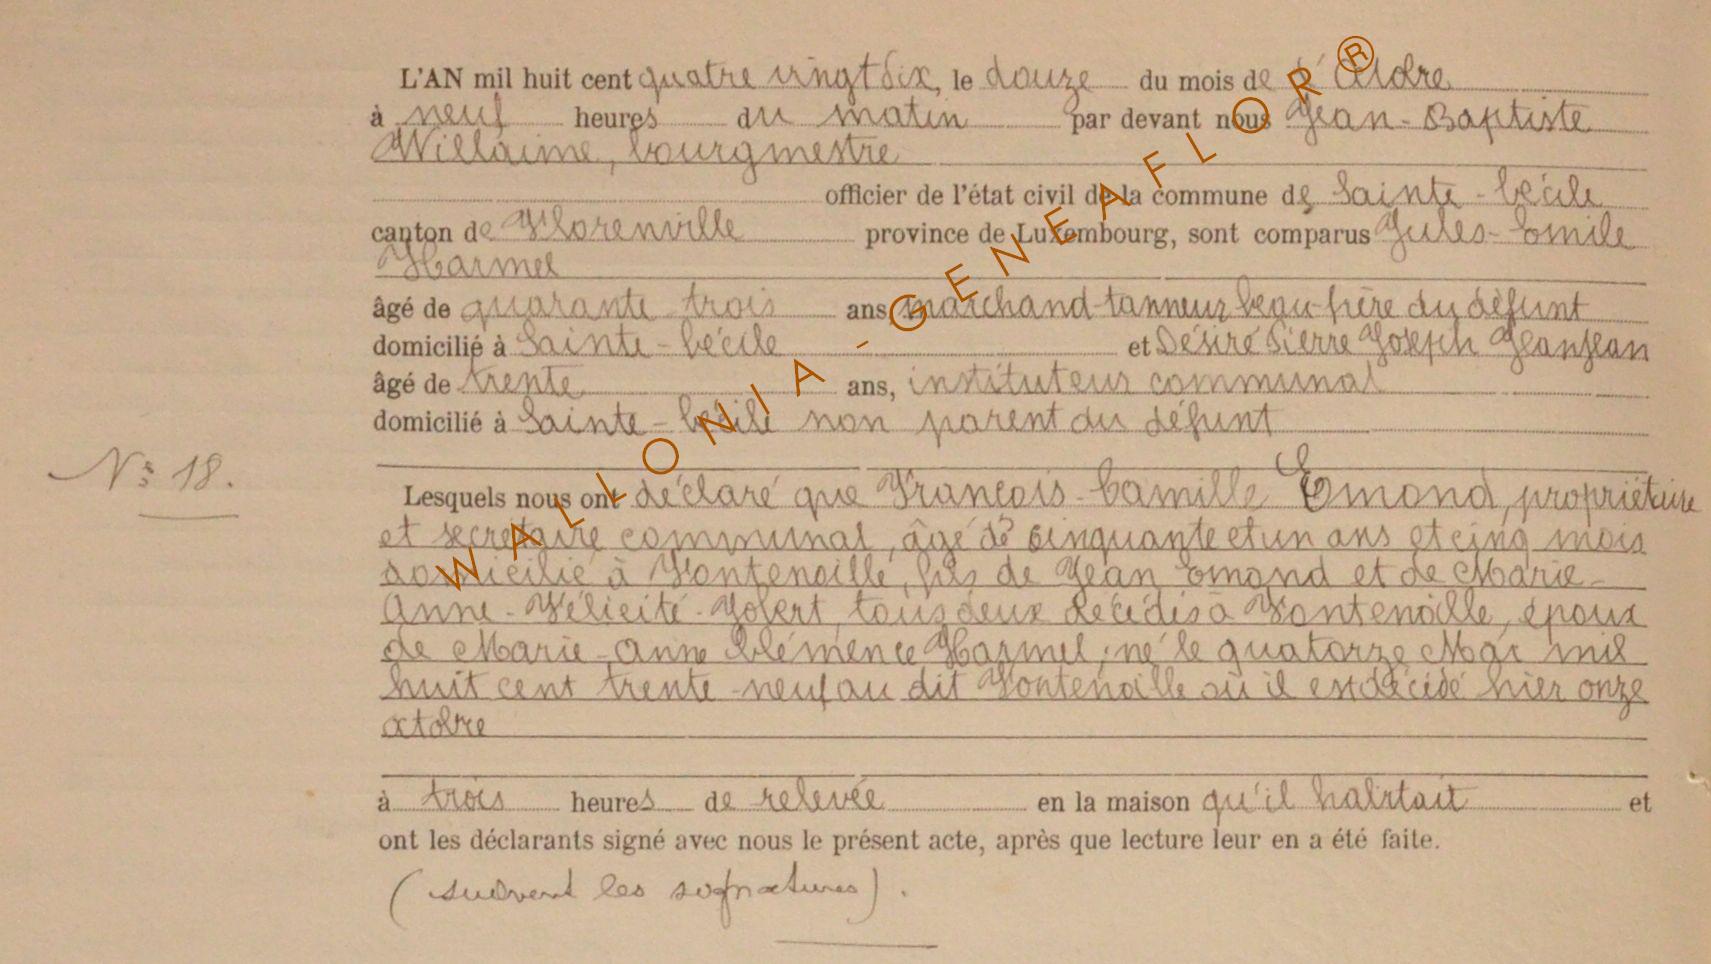 L'AN mil huit cent quatre vingt six, le douze du mois de d'Octobre
à neuf heures du matin par devant nous Jean-Baptiste
Willaime, bourgmestre
officier de l'état civil de la commune de Sainte-Cécile
canton de Florenville province de Luxembourg, sont comparus Jules-Emile
Harmel
âgé de quarante trois ans, marchand-tanneur beau-frère du défunt
domicilié à Sainte-Cécile et Désiré Pierre Joseph Jeanjean
âgé de trente ans, instituteur communal
domicilié à Sainte-Cécile non parent du défunt
N° 18.
Lesquels nous ont déclaré que François-Camille Emond, propriétaire
et secrétaire communal, âgé de cinquante et un ans et cinq mois
domicilié à Fontenoille, fils de Jean Emond et de Marie-
Anne-Félicité-Jobert, tous deux décédés à Fontenoille, époux
de Marie-Anne Clémence Harmel, né le quatorze Mai mil
huit cent trente-neuf au dit Fontenoille où il est décédé hier onze
octobre
à trois heures de relevée en la maison qu'il habitait et
ont les déclarants signé avec nous le présent acte, après que lecture leur en a été faite.
(suivent les signatures).
WALLONIA - GENEAFLOR®